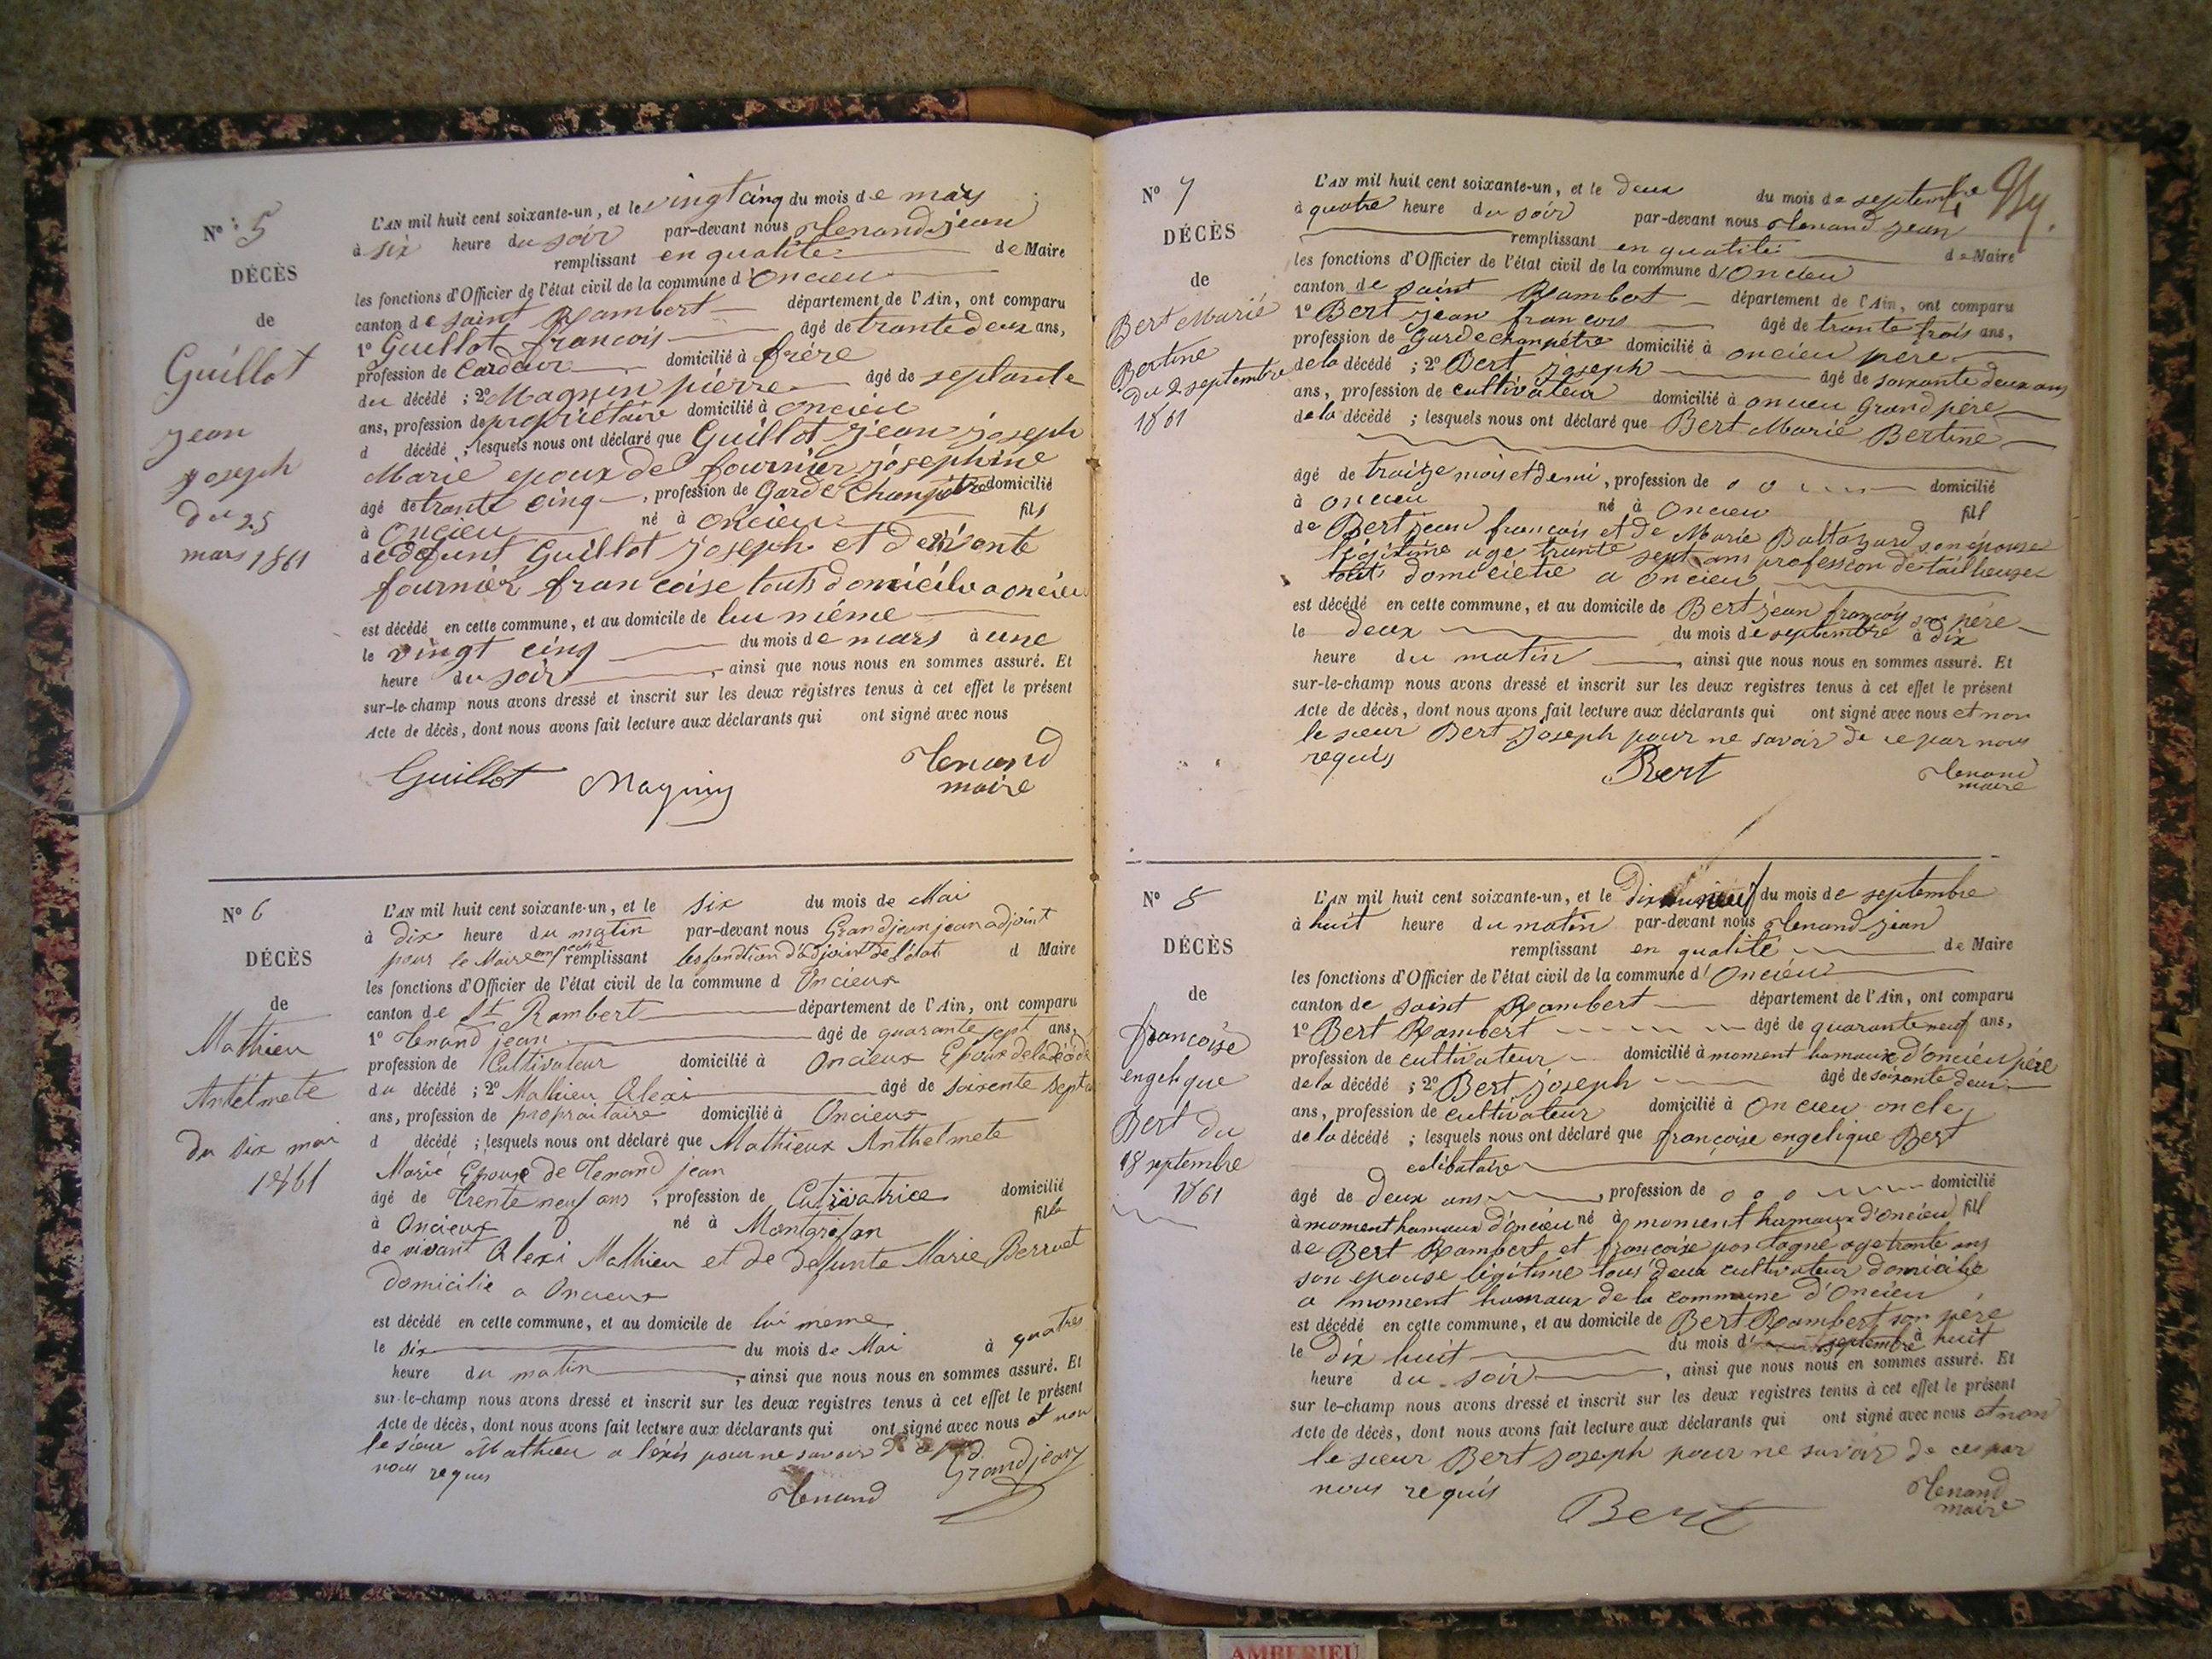 N° 5
DÉCÈS
de
Guillot
jean
joseph
du 25
mars 1861
L'AN mil huit cent soixante-un, et le vingt cinq du mois de mars
à six heure du soir par-devant nous Tenand jean
remplissant en qualité de Maire
les fonctions d'Officier de l'état civil de la commune d'Oncieu
canton de saint Rambert département de l'Ain, ont comparu
1° Guillot francois âgé de trante deux ans,
profession de Cardeur domicilié à frére
du décédé ; 2° Magnin pierre âgé de septante
ans, profession de propriétaire domicilié à oncieu
d décédé ; lesquels nous ont déclaré que Guillot jean joseph
Marie epoux de fournier josephine
âgé de trante cinq, profession de Garde Champetre domicilié
à Oncieu né à oncieu fils
de defunt Guillot joseph et de vivante
fournier francoise touts domicilie a oncieu
est décédé en cette commune, et au domicile de lui méme
le vingt cinq du mois de mars à une
heure du soir, ainsi que nous nous en sommes assuré. Et
sur-le-champ nous avons dressé et inscrit sur les deux régistres tenus à cet effet le présent
Acte de décès, dont nous avons fait lecture aux déclarants qui ont signé avec nous
Guillot Magnin Tenand
maire
N° 6
DÉCÈS
de
Mathieu
Antelmete
du six mai
1861
L'AN mil huit cent soixante-un, et le six du mois de Mai
à dix heure du matin par-devant nous Grandjean jean adjoint
pour le Maire empeche remplissant les fonction d'adjoint de l'état d Maire
les fonctions d'Officier de l'état civil de la commune d Oncieux
canton de St Rambert département de l'Ain, ont comparu
1° Tenand jean âgé de quarante sept ans,
profession de Cultivateur domicilié à Oncieux Epoux de la décédé
du décédé ; 2° Mathieu Alexi âgé de soixente sept
ans, profession de propraitaire domicilié à Oncieux
d décédé ; lesquels nous ont déclaré que Mathieux Anthelmete
Marie Epouse de Tenand jean
âgé de Trente neuf ans, profession de Cutivatrice domicilié
à Oncieux né à Montgrifon fille
de vivant Alexi Mathieu et de defunte Marie Berruet
domicilie a Oncieux
est décédé en cette commune, et au domicile de lui meme
le six du mois de Mai à quatres
heure du matin, ainsi que nous nous en sommes assuré. Et
sur-le-champ nous avons dressé et inscrit sur les deux registres tenus à cet effet le présent
Acte de décès, dont nous avons fait lecture aux déclarants qui ont signé avec nous et non
le sieur Mathieu a lexis pour ne savoir de
nous requis Grandjean
Tenand
N° 7
DÉCÈS
de
Bert Marié
Bertine
du 2 septembre
1861
L'AN mil huit cent soixante-un, et le deux du mois de septembre
à quatre heure du soir par-devant nous Tenand jean
remplissant en qualité de Maire
les fonctions d'Officier de l'état civil de la commune d'Oncieu
canton de saint Rambert département de l'Ain, ont comparu
1° Bert jean francois âgé de trante trois ans,
profession de Garde chanpétre domicilié à oncieu père
de la décédé ; 2° Bert joseph âgé de soixante deux ans
ans, profession de cultivateur domicilié à oncieu Grand père
de la décédé ; lesquels nous ont déclaré que Bert Marie Bertine
âgé de traize mois et demi, profession de o o domicilié
à oncieu né à Oncieu fill
de Bert jean francois et de Marie Baltazard son epouse
légitime age trante sept ans profession de tailleuse
touts domiciclié a oncieu
est décédé en cette commune, et au domicile de Bert jean françois son père
le deux du mois de septembre à dix
heure du matin, ainsi que nous nous en sommes assuré. Et
sur-le-champ nous avons dressé et inscrit sur les deux registres tenus à cet effet le présent
Acte de décès, dont nous avons fait lecture aux déclarants qui ont signé avec nous et non
le sieur Bert joseph pour ne savoir de ce par nous
requis Bert Tenand
maire
N° 8
DÉCÈS
de
françoise
engelique
Bert du
18 septembre
1861
L'AN mil huit cent soixante-un, et le Dix neuf du mois de septembre
à huit heure du matin par-devant nous Tenand jean
remplissant en qualité de Maire
les fonctions d'Officier de l'état civil de la commune d'Oncieu
canton de saint Rambert département de l'Ain, ont comparu
1° Bert Rambert âgé de quarante neuf ans,
profession de cultivateur domicilié à moment hamaux d'oncieu père
de la décédé ; 2° Bert joseph âgé de soixante deux
ans, profession de cultivateur domicilié à Oncieu oncle
de la décédé ; lesquels nous ont déclaré que françoise engelique Bert
celibataire
âgé de deux ans, profession de o o o domicilié
à moment hamaux d'oncieu né à moment hamaux d'oncieu fill
de Bert Rambert et françoise age trante ans
son epouse légitime tous deux cultivateur domicilié
a moment hamaux de la commune d'Oncieu
est décédé en cette commune, et au domicile de Bert Rambert son père
le dix huit du mois d septembre à huit
heure du soir, ainsi que nous nous en sommes assuré. Et
sur le-champ nous avons dressé et inscrit sur les deux registres tenus à cet effet le présent
Acte de décès, dont nous avons fait lecture aux déclarants qui ont signé avec nous et non
le sieur Bert joseph pour ne savoir de ce par
nous requis Tenand
maire
Bert
AMBERIEU